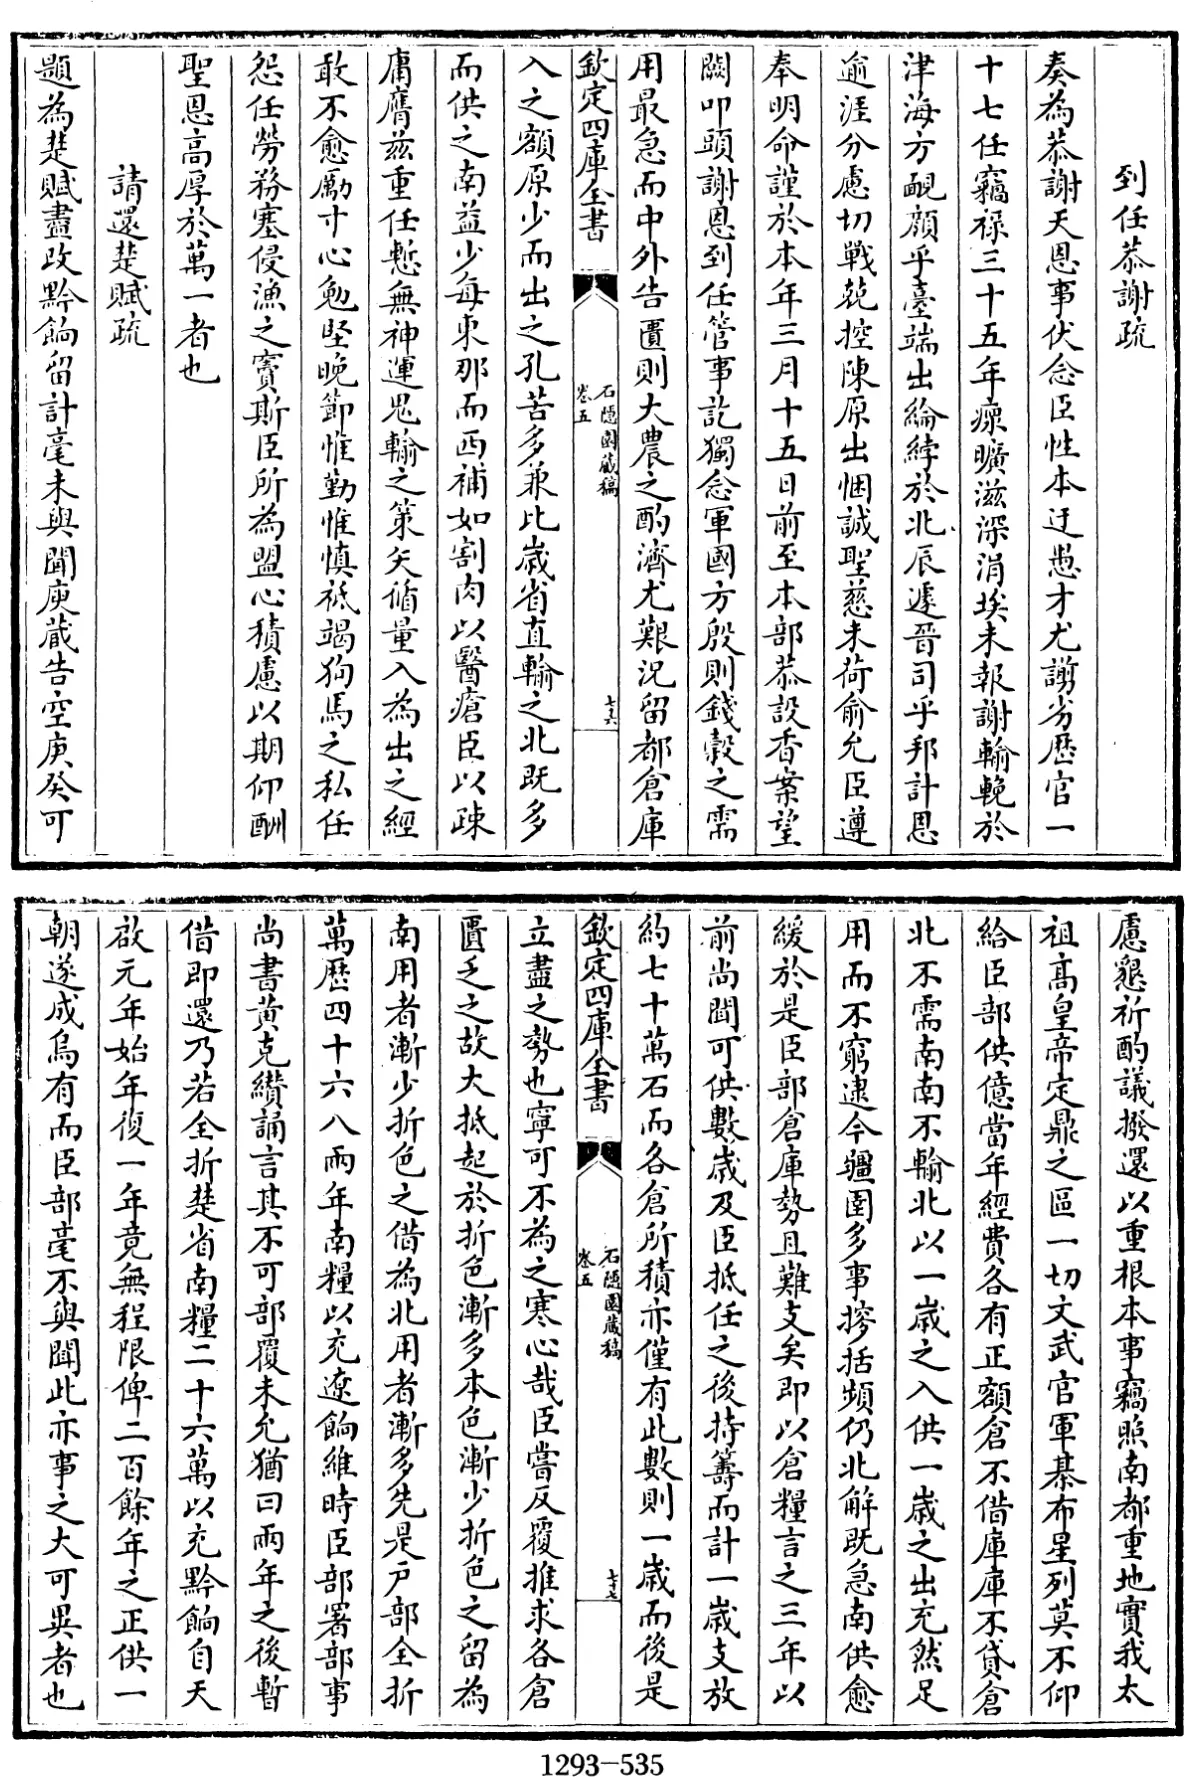 到任恭謝疏
奏為恭謝天恩事伏念臣性本迂愚才尤謭劣歴官一
十七任竊禄三十五年瘝曠滋深涓埃未報謝輸輓於
津海方靦顔乎臺端出綸綍於北辰遽晉司乎邦計恩
逾涯分慮切戰兢控陳原出悃誠聖慈未荷俞允臣遵
奉明命謹於本年三月十五日前至本部恭設香案望
闕叩頭謝恩到任管事訖獨念軍國方殷則錢榖之需
用最急而中外告匱則大農之酌濟尤艱況留都倉庫
欽定四庫全書
石隠園藏稿
卷五
七十六
入之額原少而出之孔苦多兼比歲省直輸之北既多
而供之南益少每東那而西補如割肉以醫瘡臣以疎
庸膺兹重任慙無神運鬼輸之策矢循量入為出之經
敢不愈厲寸心勉堅晚節惟勤惟慎祗竭狗馬之私任
怨任勞務塞侵漁之竇斯臣所為盟心積慮以期仰酬
聖恩高厚於萬一者也
請還楚賦疏
題為楚賦盡改黔餉留計毫未與聞庾藏告空庚癸可
慮懇祈酌議撥還以重根本事竊照南都重地實我太
祖高皇帝定鼎之區一切文武官軍棊布星列莫不仰
給臣部供億當年經費各有正額倉不借庫庫不貸倉
北不需南南不輸北以一歲之入供一歲之出充然足
用而不窮逮今疆圉多事搜括頻仍北解既急南供愈
緩於是臣部倉庫勢且難支矣即以倉糧言之三年以
前尚聞可供數歲及臣抵任之後持籌而計一歲支放
約七十萬石而各倉所積亦僅有此數則一歲而後是
欽定四庫全書
石隠園藏稿
卷五
七十七
立盡之勢也寧可不為之寒心哉臣嘗反覆推求各倉
匱乏之故大抵起於折色漸多本色漸少折色之留為
南用者漸少折色之借為北用者漸多先是户部全折
萬歴四十六八兩年南糧以充遼餉維時臣部署部事
尚書黄克纘誦言其不可部覆未允猶曰兩年之後暫
借即還乃若全折楚省南糧二十六萬以充黔餉自天
啟元年始年復一年竟無程限俾二百餘年之正供一
朝遂成烏有而臣部毫不與聞此亦事之大可異者也
1293-535